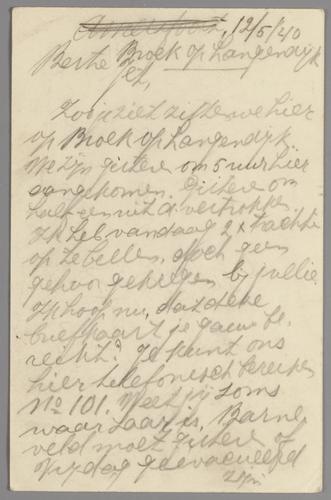 Amersfoort, 12/5/40
Broek op Langendijk
Beste
Zooje ziet zitten we hier
op Broek op Langendijk.
We zijn gisteren om 5 uur hier
aangekomen. Gisteren om
half een uit A. vertrokken.
Ik heb vandaag 2 x trachten
op te bellen, doch geen
gehoor gekregen bij jullie.
Ik hoop nu, dat deze
briefkaart je gauw be-
reikt. Je kunt ons
hier telefonisch bereiken
No 101. Weet jij soms
waar is. Barne
veld moet gisteren of
Vrijdag geevacueerd
zijn